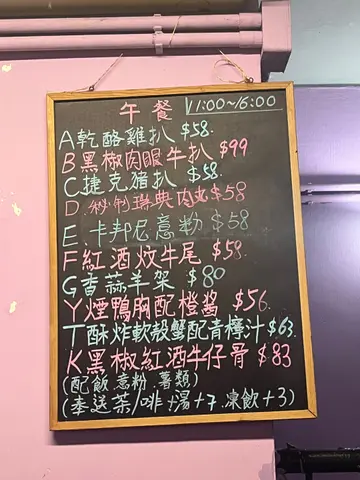 午餐 11:00~16:00
A乾酪雞扒 $58.
B黑椒肉眼牛扒 $99
C捷克豬扒 $58.
D.秘制瑞典肉丸$58
E.卡邦尼意粉 $58
F紅酒炆牛尾 $58.
G香蒜羊架 $80
Y煙鴨胸配橙醬 $56.
T酥炸軟殼蟹配青檸汁$63.
K黑椒紅酒牛仔骨 $83
(配飯.意粉.薯類)
(奉送茶/啡+湯+7.凍飲+3)